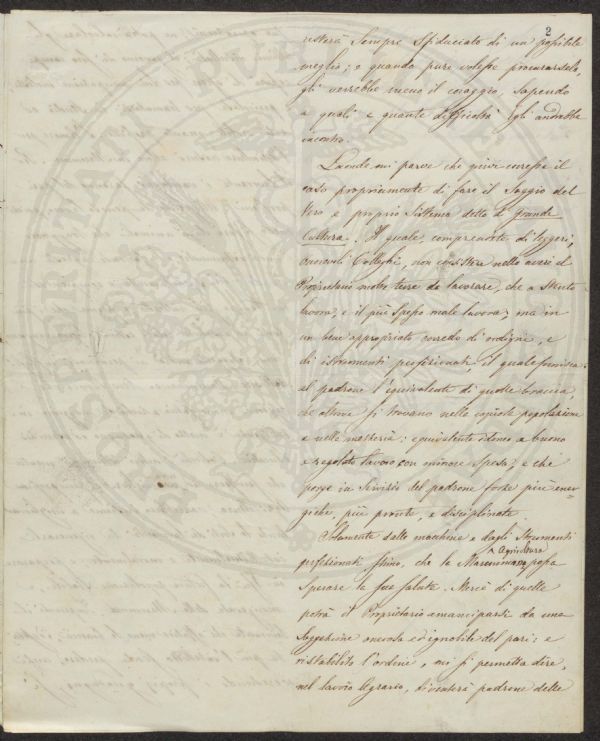 2
resterà sempre sfiduciato di un possibile
meglio; e quando pure volesse procurarselo,
gli verrebbe meno il coraggio, sapendo
a quali e quante difficoltà egli andrebbe
incontro.
Laonde mi parve che quivi corresse il
caso propriamente di fare il Saggio del
vero e proprio sistema detto a grande
Cultura. Il quale, comprendete di leggeri,
onorevoli Colleghi, non consisterà nello avere il
Proprietario molte terre da lavorare, che a stento
lavora, e il più spesso male lavora; ma in
un bene appropriato corredo di ordigni, e
di istrumenti perfezionati, il quale fornisca
al padrone l'equivalente di quelle braccia,
che altrove si trovano nella copiosa popolazione
e nella mezzeria: equivalente idoneo a buono
e regolato lavoro con minore spesa, e che
pone in servizio del padrone forze più ener-
giche, più pronte, e disciplinate.
Solamente dalle macchine e dagli strumenti
perfezionati stimo, che la Maremmana Agricoltura possa
sperare la sua salute. Mercè di quelle
potrà il Proprietario emanciparsi da una
soggezione onerosa ed ignobile del pari: e
ristabilito l'ordine, mi si permetta dire,
nel lavoro Agrario, diventerà padrone delle